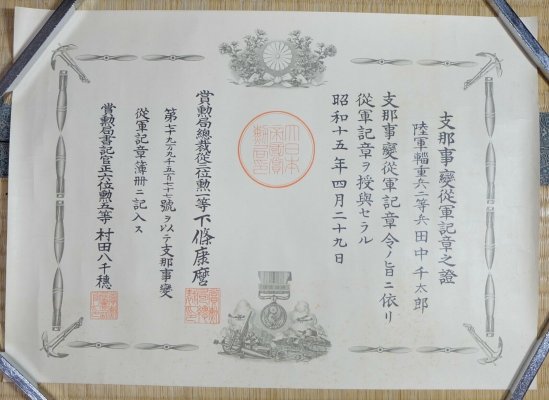 支那事變從軍記章之證
陸軍輜重兵二等兵田中千太郎
支那事變從軍記章令ノ旨ニ依リ
從軍記章ヲ授與セラル
昭和十五年四月二十九日
大日本
帝國賞
勲局印
賞勲局總裁從三位勲一等下條康麿
號ヲ以テ支那事變
從軍記章簿冊ニ記入ス
賞勲局書記官正六位勲五等村田八千穂